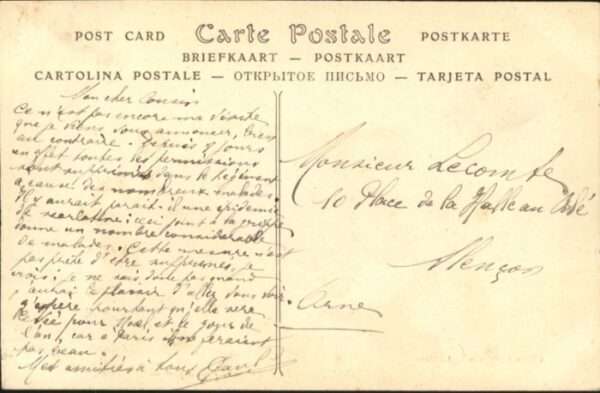 POST CARD — Carte Postale — POSTKARTE
BRIEFKAART — POSTKAART
CARTOLINA POSTALE — ОТКРЫТОЕ ПИСЬМО — TARJETA POSTAL
Mon cher Cousin
Ce n'est pas encore ma visite
que je viens vous annoncer,
au contraire. Depuis 8 jours
en effet toutes les permissions
sont supprimées dans le Régiment
à cause des nombreux malades.
Il y aurait parait-il une épidémie
de scarlatine: ceci joint à la grippe
donne un nombre considérable
de malades. Cette mesure n'est
pas prête d'être je
crois: je ne sais donc pas quand
j'aurai le plaisir d'aller vous voir.
J'espère pourtant qu'elle sera
levée pour Noël, et le jour de
l'an, car à Paris
pas beau.
Mes amitiés à tous Paul
Monsieur Lecomte
10 Place de la Halle au Blé
Alençon
Orne